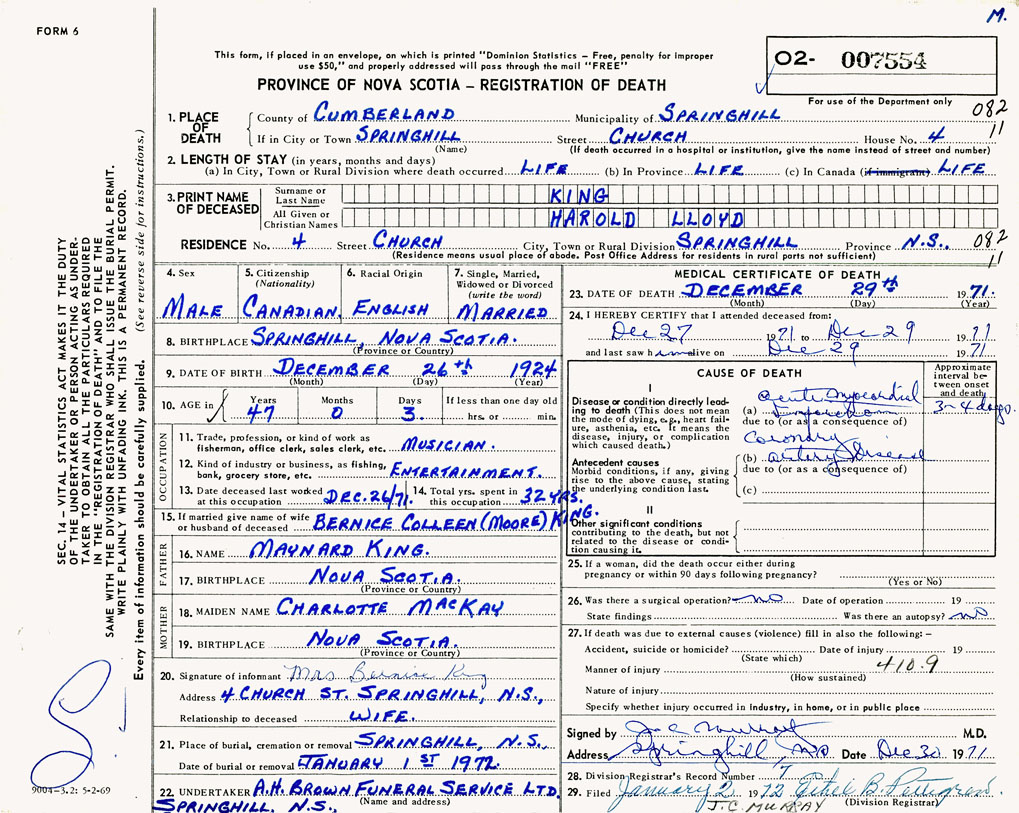 M.
FORM 6
This form, if placed in an envelope, on which is printed "Dominion Statistics – Free, penalty for improper
use $50," and properly addressed will pass through the mail "FREE"
O2- 007554
PROVINCE OF NOVA SCOTIA – REGISTRATION OF DEATH
For use of the Department only
1. PLACE OF DEATH
County of CUMBERLAND Municipality of SPRINGHILL 082
If in City or Town SPRINGHILL Street CHURCH House No. 4 11
(Name) (If death occurred in a hospital or institution, give the name instead of street and number)
2. LENGTH OF STAY (in years, months and days)
(a) In City, Town or Rural Division where death occurred LIFE (b) In Province LIFE (c) In Canada (if immigrant) LIFE
3. PRINT NAME OF DECEASED
Surname or Last Name KING
All Given or Christian Names HAROLD LLOYD
RESIDENCE No. 4 Street CHURCH City, Town or Rural Division SPRINGHILL Province N.S., 082
(Residence means usual place of abode. Post Office Address for residents in rural parts not sufficient) 11
4. Sex
MALE
5. Citizenship (Nationality)
CANADIAN,
6. Racial Origin
ENGLISH
7. Single, Married, Widowed or Divorced (write the word)
MARRIED
8. BIRTHPLACE SPRINGHILL, NOVA SCOTIA.
(Province or Country)
9. DATE OF BIRTH DECEMBER 26th 1924
(Month) (Day) (Year)
10. AGE in
Years Months Days If less than one day old
47 0 3. hrs. or min.
OCCUPATION
11. Trade, profession, or kind of work as
fisherman, office clerk, sales clerk, etc. MUSICIAN.
12. Kind of industry or business, as fishing,
bank, grocery store, etc. ENTERTAINMENT.
13. Date deceased last worked at this occupation DEC. 26/71.
14. Total yrs. spent in this occupation 32 YRS.
15. If married give name of wife or husband of deceased BERNICE COLLEEN (MOORE) KING.
FATHER
16. NAME MAYNARD KING.
17. BIRTHPLACE NOVA SCOTIA.
(Province or Country)
MOTHER
18. MAIDEN NAME CHARLOTTE MACKAY
19. BIRTHPLACE NOVA SCOTIA.
(Province or Country)
20. Signature of informant Mrs Bernice King
Address 4 CHURCH ST. SPRINGHILL, N.S.,
Relationship to deceased WIFE.
21. Place of burial, cremation or removal SPRINGHILL, N.S.
Date of burial or removal JANUARY 1ST 1972.
22. UNDERTAKER A.H. BROWN FUNERAL SERVICE LTD.
(Name and address)
SPRINGHILL, N.S.,
MEDICAL CERTIFICATE OF DEATH
23. DATE OF DEATH DECEMBER 29th 1971.
(Month) (Day) (Year)
24. I HEREBY CERTIFY that I attended deceased from:
Dec 27 1971 to Dec 29 1971
and last saw him alive on Dec 29 1971
CAUSE OF DEATH
Approximate interval between onset and death
I
Disease or condition directly leading to death (This does not mean the mode of dying, e.g., heart failure, asthenia, etc. It means the disease, injury, or complication which caused death.)
(a) acute myocardial 3-4 days.
due to (or as a consequence of)
Coronary
(b) artery disease
due to (or as a consequence of)
Antecedent causes
Morbid conditions, if any, giving rise to the above cause, stating the underlying condition last.
(c)
II
Other significant conditions
contributing to the death, but not related to the disease or condition causing it.
25. If a woman, did the death occur either during
pregnancy or within 90 days following pregnancy?
(Yes or No)
26. Was there a surgical operation? no Date of operation 19
State findings Was there an autopsy? no
27. If death was due to external causes (violence) fill in also the following: –
Accident, suicide or homicide? Date of injury 19
(State which)
Manner of injury 410.9
(How sustained)
Nature of injury
Specify whether injury occurred in industry, in home, or in public place
Signed by J C Murray M.D.
Address Springhill NS Date Dec 30 1971
28. Division Registrar's Record Number 7
29. Filed January 2 1972 Ethel B. Pettigrew.
J.C. MURRAY (Division Registrar)
SEC. 14 – VITAL STATISTICS ACT MAKES IT THE DUTY
OF THE UNDERTAKER OR PERSON ACTING AS UNDER-
TAKER TO OBTAIN ALL THE PARTICULARS REQUIRED
IN THE "REGISTRATION OF DEATH" AND TO FILE THE
SAME WITH THE DIVISION REGISTRAR WHO SHALL ISSUE THE BURIAL PERMIT.
WRITE PLAINLY WITH UNFADING INK. THIS IS A PERMANENT RECORD.
Every item of information should be carefully supplied. (See reverse side for instructions.)
9004-3.2: 5-2-69